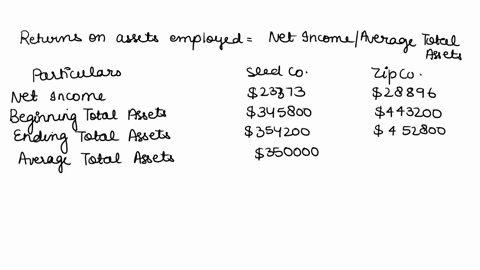 Returns on assets employed = Net Income/Average Total Assets
Particulars Seed Co. Zip Co.
Net Income $23873 $28896
Beginning Total Assets $345800 $443200
Ending Total Assets $354200 $452800
Average Total Assets $350000